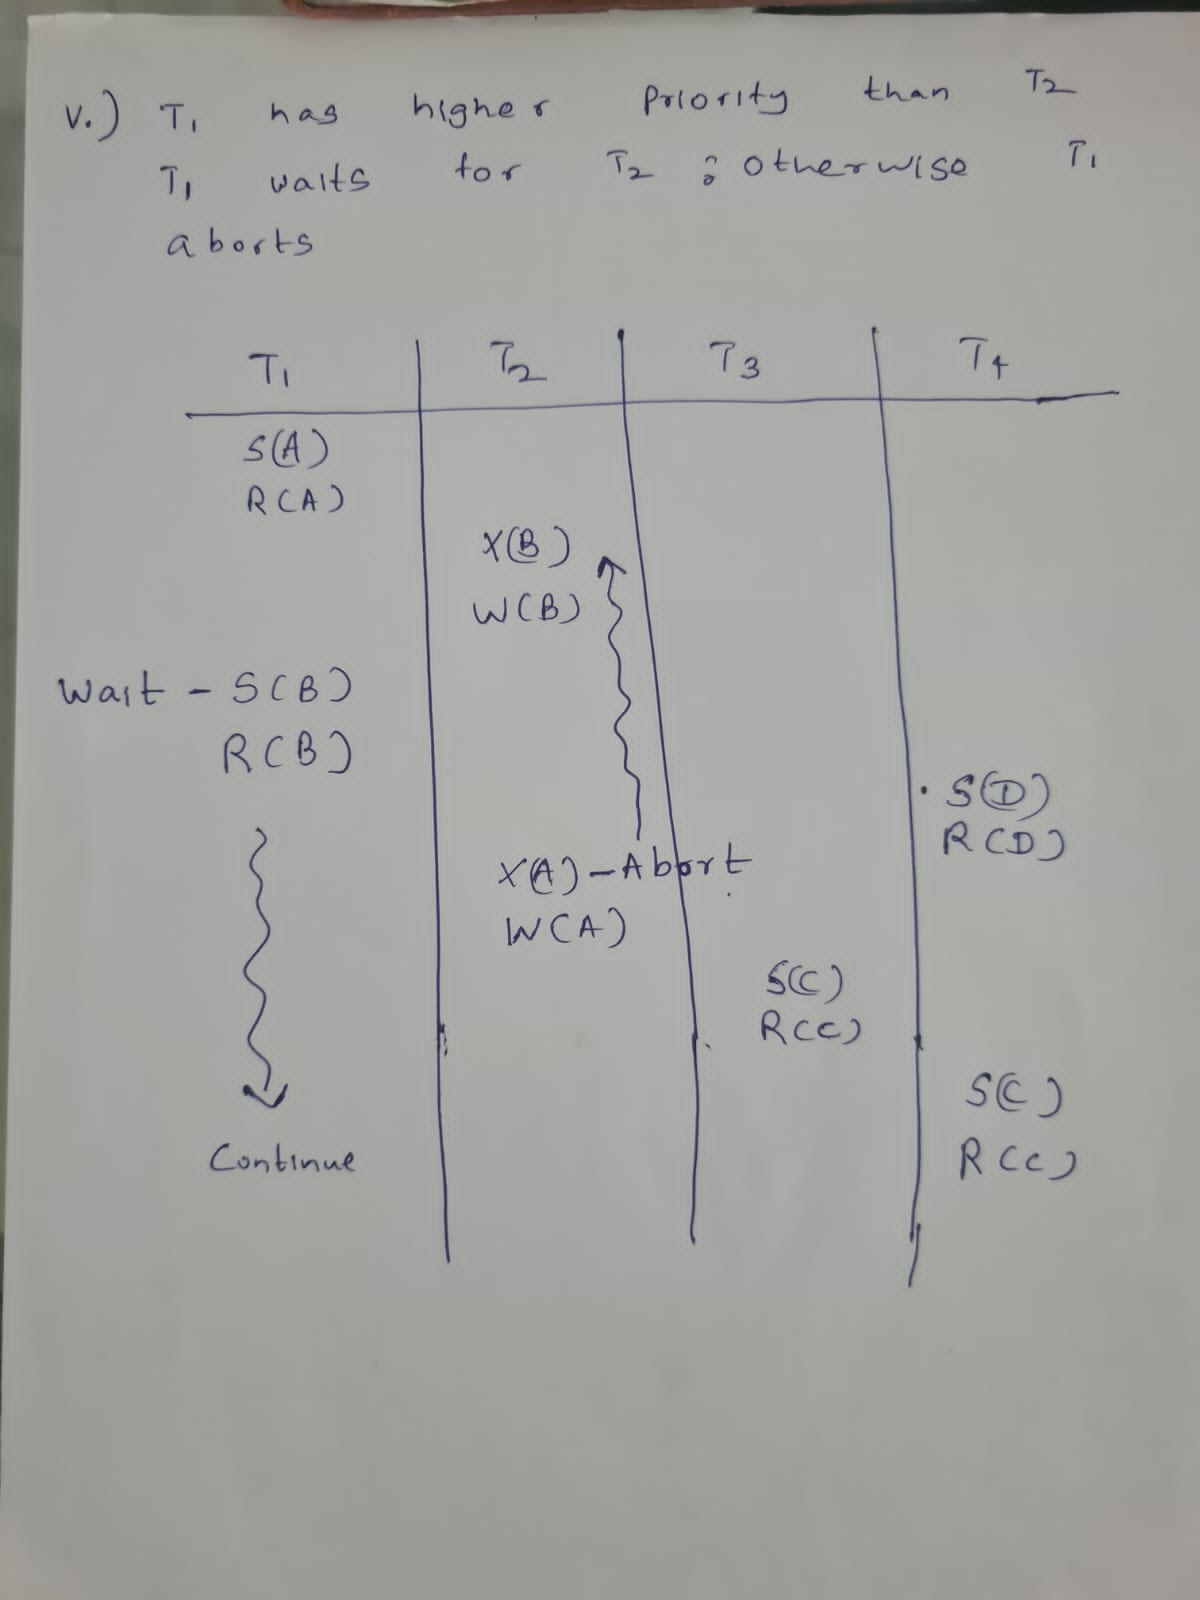 V.) T1 has higher Priority than T2
T1 waits for T2 ; otherwise T1
aborts
T1 T2 T3 T4
S(A)
R(A)
X(B)
W(B)
Wait - S(B)
R(B)
S(D)
R(D)
X(A) - Abort
W(A)
S(C)
R(C)
S(C)
R(C)
Continue